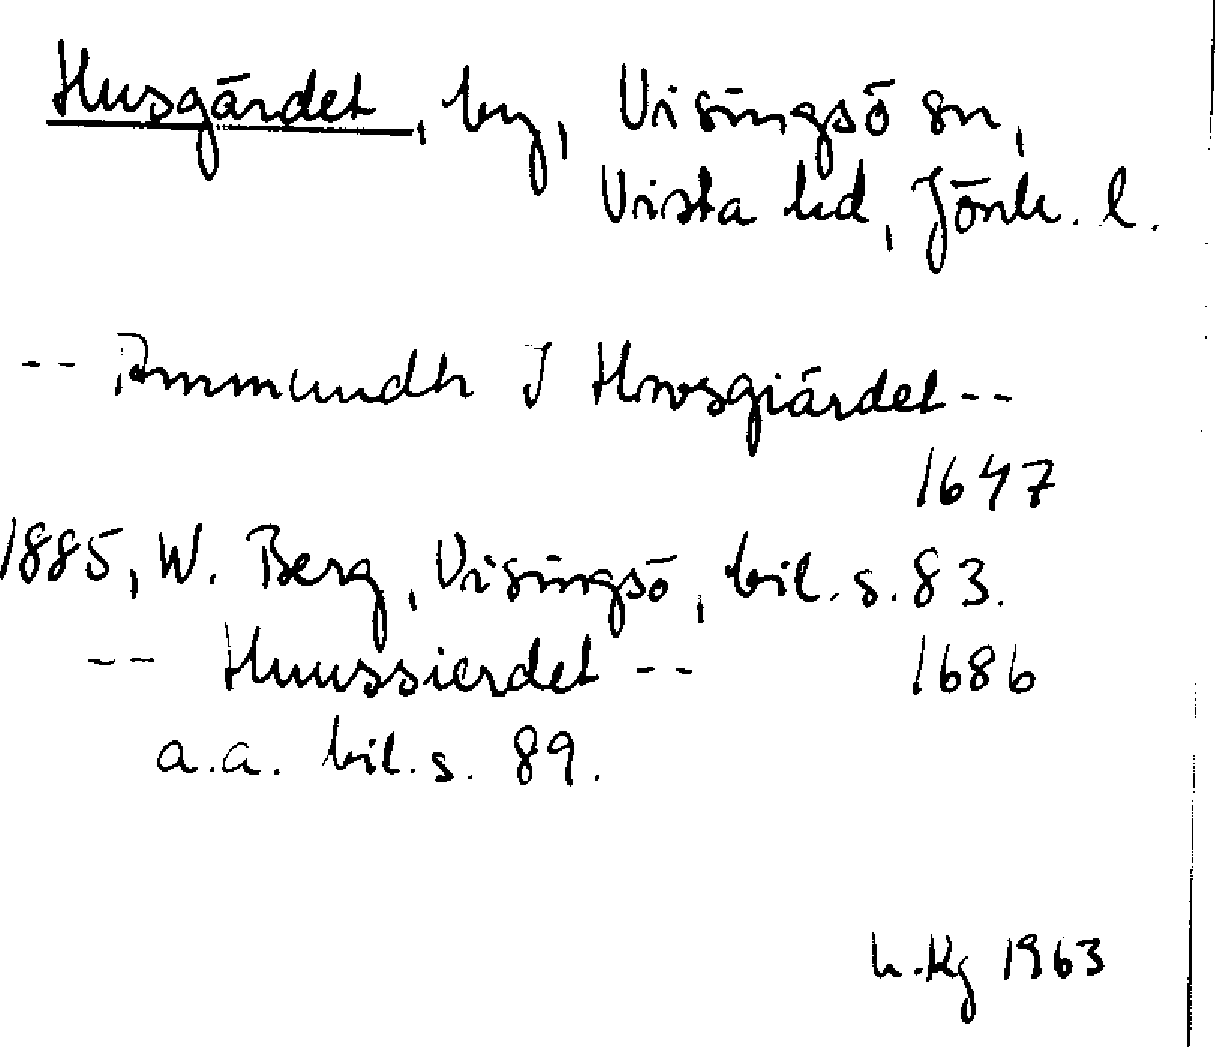 Husgärdet, by, Visingsö sn,
Vista hd, Jönk. l.
-- Ammundh J Hwsgiärdet --
1647
1885, W. Berg, Visingsö, bil. s. 83.
-- Huussierdet -- 1686
a.a. bil. s. 89.
L.Kg 1963